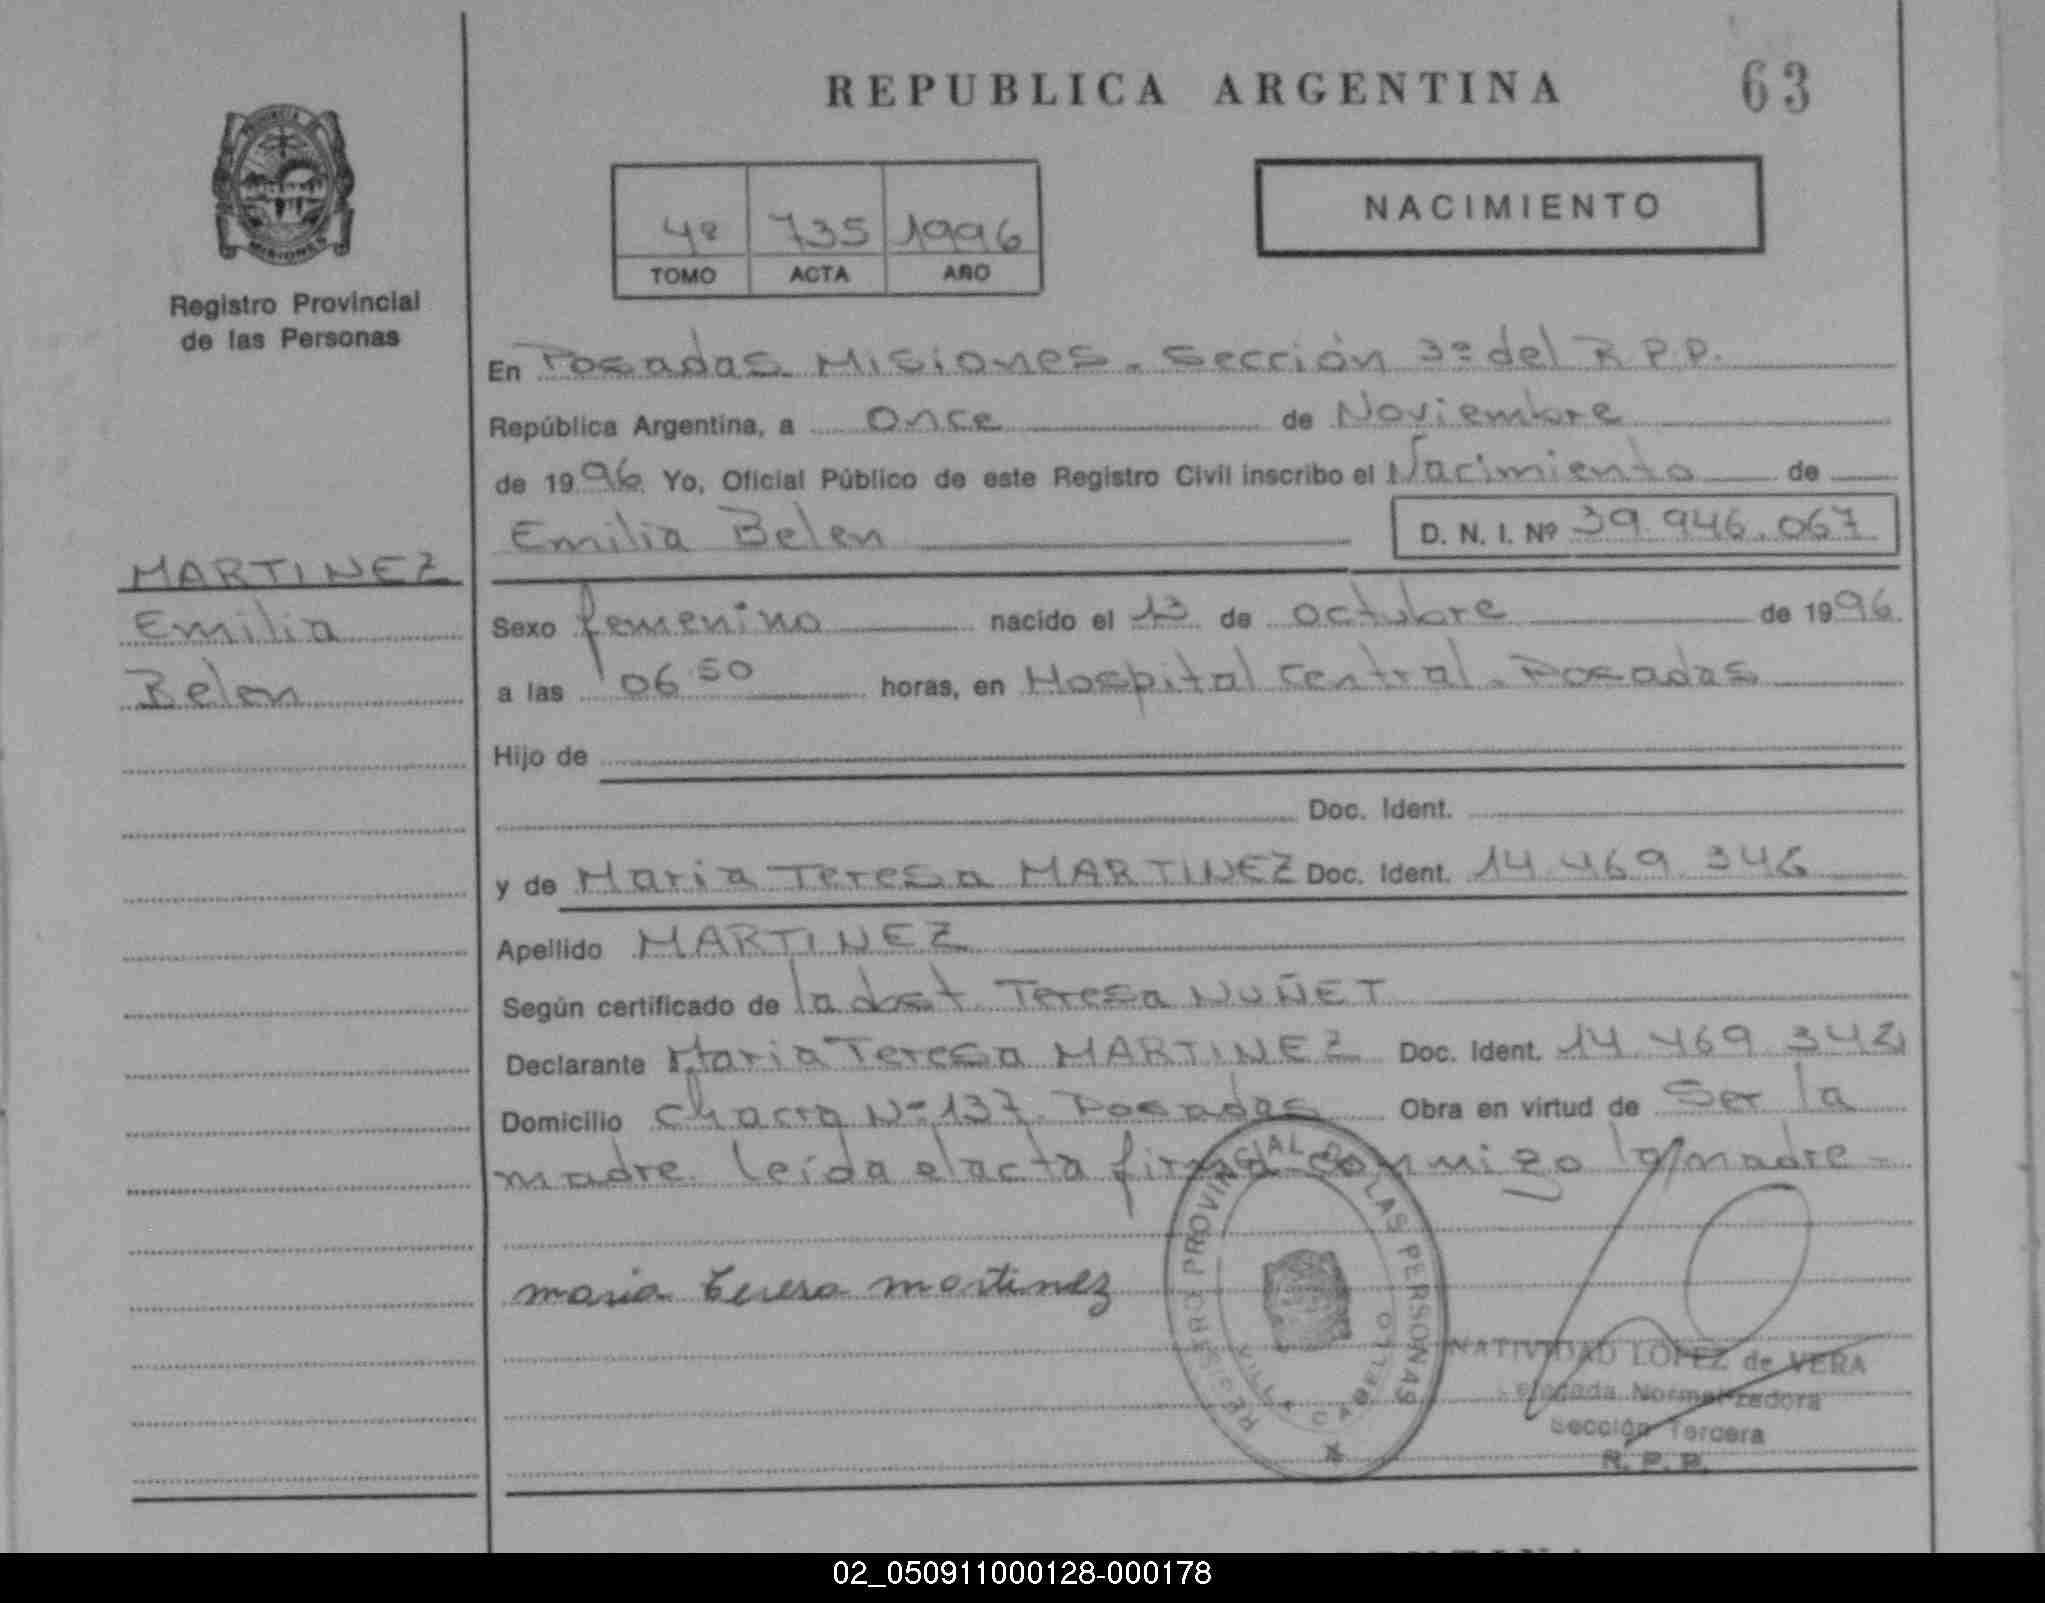 REPUBLICA ARGENTINA
63
4º 735 1996
TOMO ACTA AÑO
NACIMIENTO
PROVINCIA
MISIONES
Registro Provincial
de las Personas
En Posadas Misiones. Sección 3ª del R.P.P.
República Argentina, a Once de Noviembre
de 1996 Yo, Oficial Público de este Registro Civil inscribo el Nacimiento de
Emilia Belen D. N. I. Nº 39.946.067
MARTINEZ
Emilia
Belen
Sexo femenino nacido el 13 de octubre de 1996.
a las 06 50 horas, en Hospital Central. Posadas
Hijo de
Doc. Ident.
y de Maria Teresa MARTINEZ Doc. Ident. 14.469.346
Apellido MARTINEZ
Según certificado de la obst. Teresa NUÑET
Declarante Maria Teresa MARTINEZ Doc. Ident. 14.469.342
Domicilio Chacra Nº 137. Posadas Obra en virtud de Ser la
madre. leida el acta firma conmigo la madre -
maria teresa martinez
REGISTRO PROVINCIAL DE LAS PERSONAS
VILLA CABELLO
NATIVIDAD LOPEZ de VERA
Delegada Normalizadora
Sección Tercera
R. P. P.
02_050911000128-000178